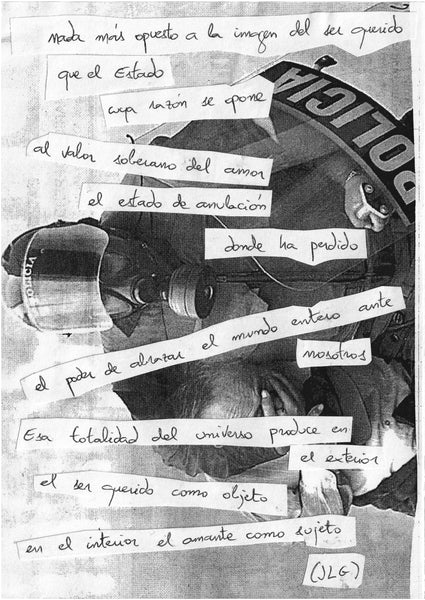 nada más opuesto a la imagen del ser querido
que el Estado
cuya razón se opone
al valor soberano del amor
el estado de anulación
donde ha perdido
el poder de abrazar el mundo entero ante
nosotros
Esa totalidad del universo produce en
el exterior
el ser querido como objeto
en el interior el amante como sujeto
(JLG)
POLICIA
POLICIA
POLICIA